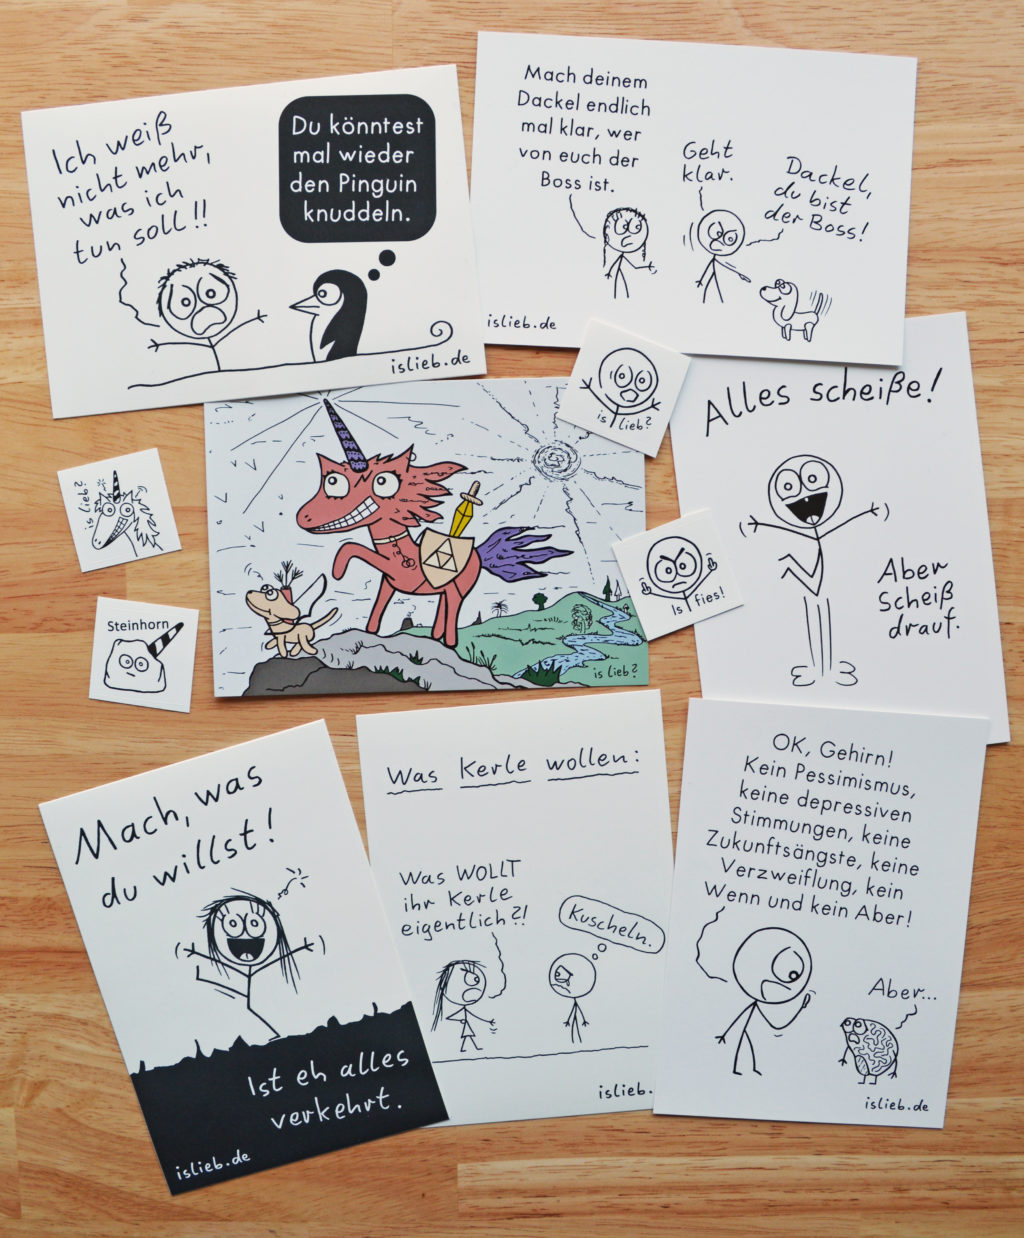 Ich weiß
nicht mehr,
was ich
tun soll!!
Du könntest
mal wieder
den Pinguin
knuddeln.
islieb.de
Mach deinem
Dackel endlich
mal klar, wer
von euch der
Boss ist.
Geht
klar.
Dackel,
du bist
der Boss!
islieb.de
is lieb?
Alles scheiße!
Aber
Scheiß
drauf.
is lieb?
Is fies!
Steinhorn
is lieb?
Mach, was
du willst!
Ist eh alles
verkehrt.
islieb.de
Was Kerle wollen:
Was WOLLT
ihr Kerle
eigentlich?!
Kuscheln.
islieb.
OK, Gehirn!
Kein Pessimismus,
keine depressiven
Stimmungen, keine
Zukunftsängste, keine
Verzweiflung, kein
Wenn und kein Aber!
Aber...
islieb.de